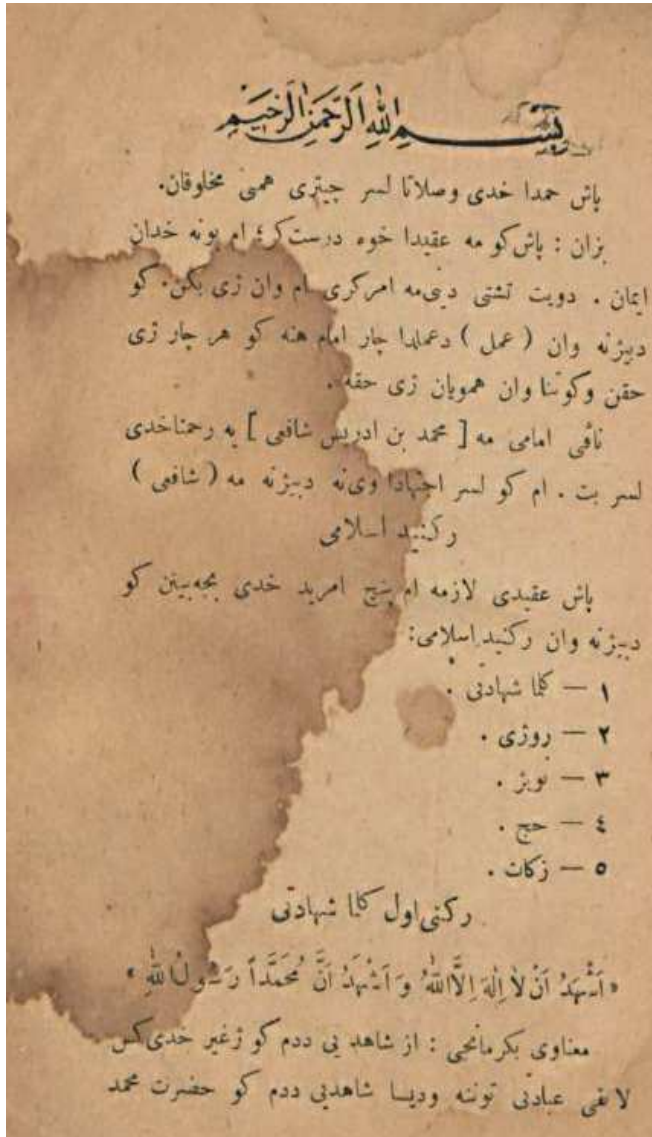 بِسْمِ اللهِ الرَّحْمَنِ الرَّحِيمِ
پاش حمدا خدی وصلاتا لسر چیتری همی مخلوقان.
بزان : پاش کو مه عقیدا خوه درست کر؛ ام بونه خدان
ایمان . دویت تشتی دینی مه امر کری ام وان ژی بکن. کو
دبیژنه وان ( عمل ) دعملدا چار امام هنه کو هر چار ژی
حقن وکوتنا وان همویان ژی حقه .
ناڤی امامی مه [ محمد بن ادریس شافعی ] یه رحمتا خدی
لسر بت . ام کو لسر اجتهادا وی نه دبیژنه مه ( شافعی )
رکنید اسلامی
پاش عقیدی لازمه ام پنج امرید خدی بجه بینن کو
دبیژنه وان رکنید اسلامی:
١ — کلما شهادتی .
٢ — روژی .
٣ — نویژ .
٤ — حج .
٥ — زکات .
رکنی اول کلما شهادتی
« اَشْهَدُ اَنْ لَا اِلٰهَ اِلَّا اللهُ وَ اَشْهَدُ اَنَّ مُحَمَّداً رَسُولُ اللهِ »
معناوی بکرمانجی : از شاهد یی ددم کو ژغیر خدی کس
لایقی عبادتی توننه ودیسا شاهدیی ددم کو حضرت محمد